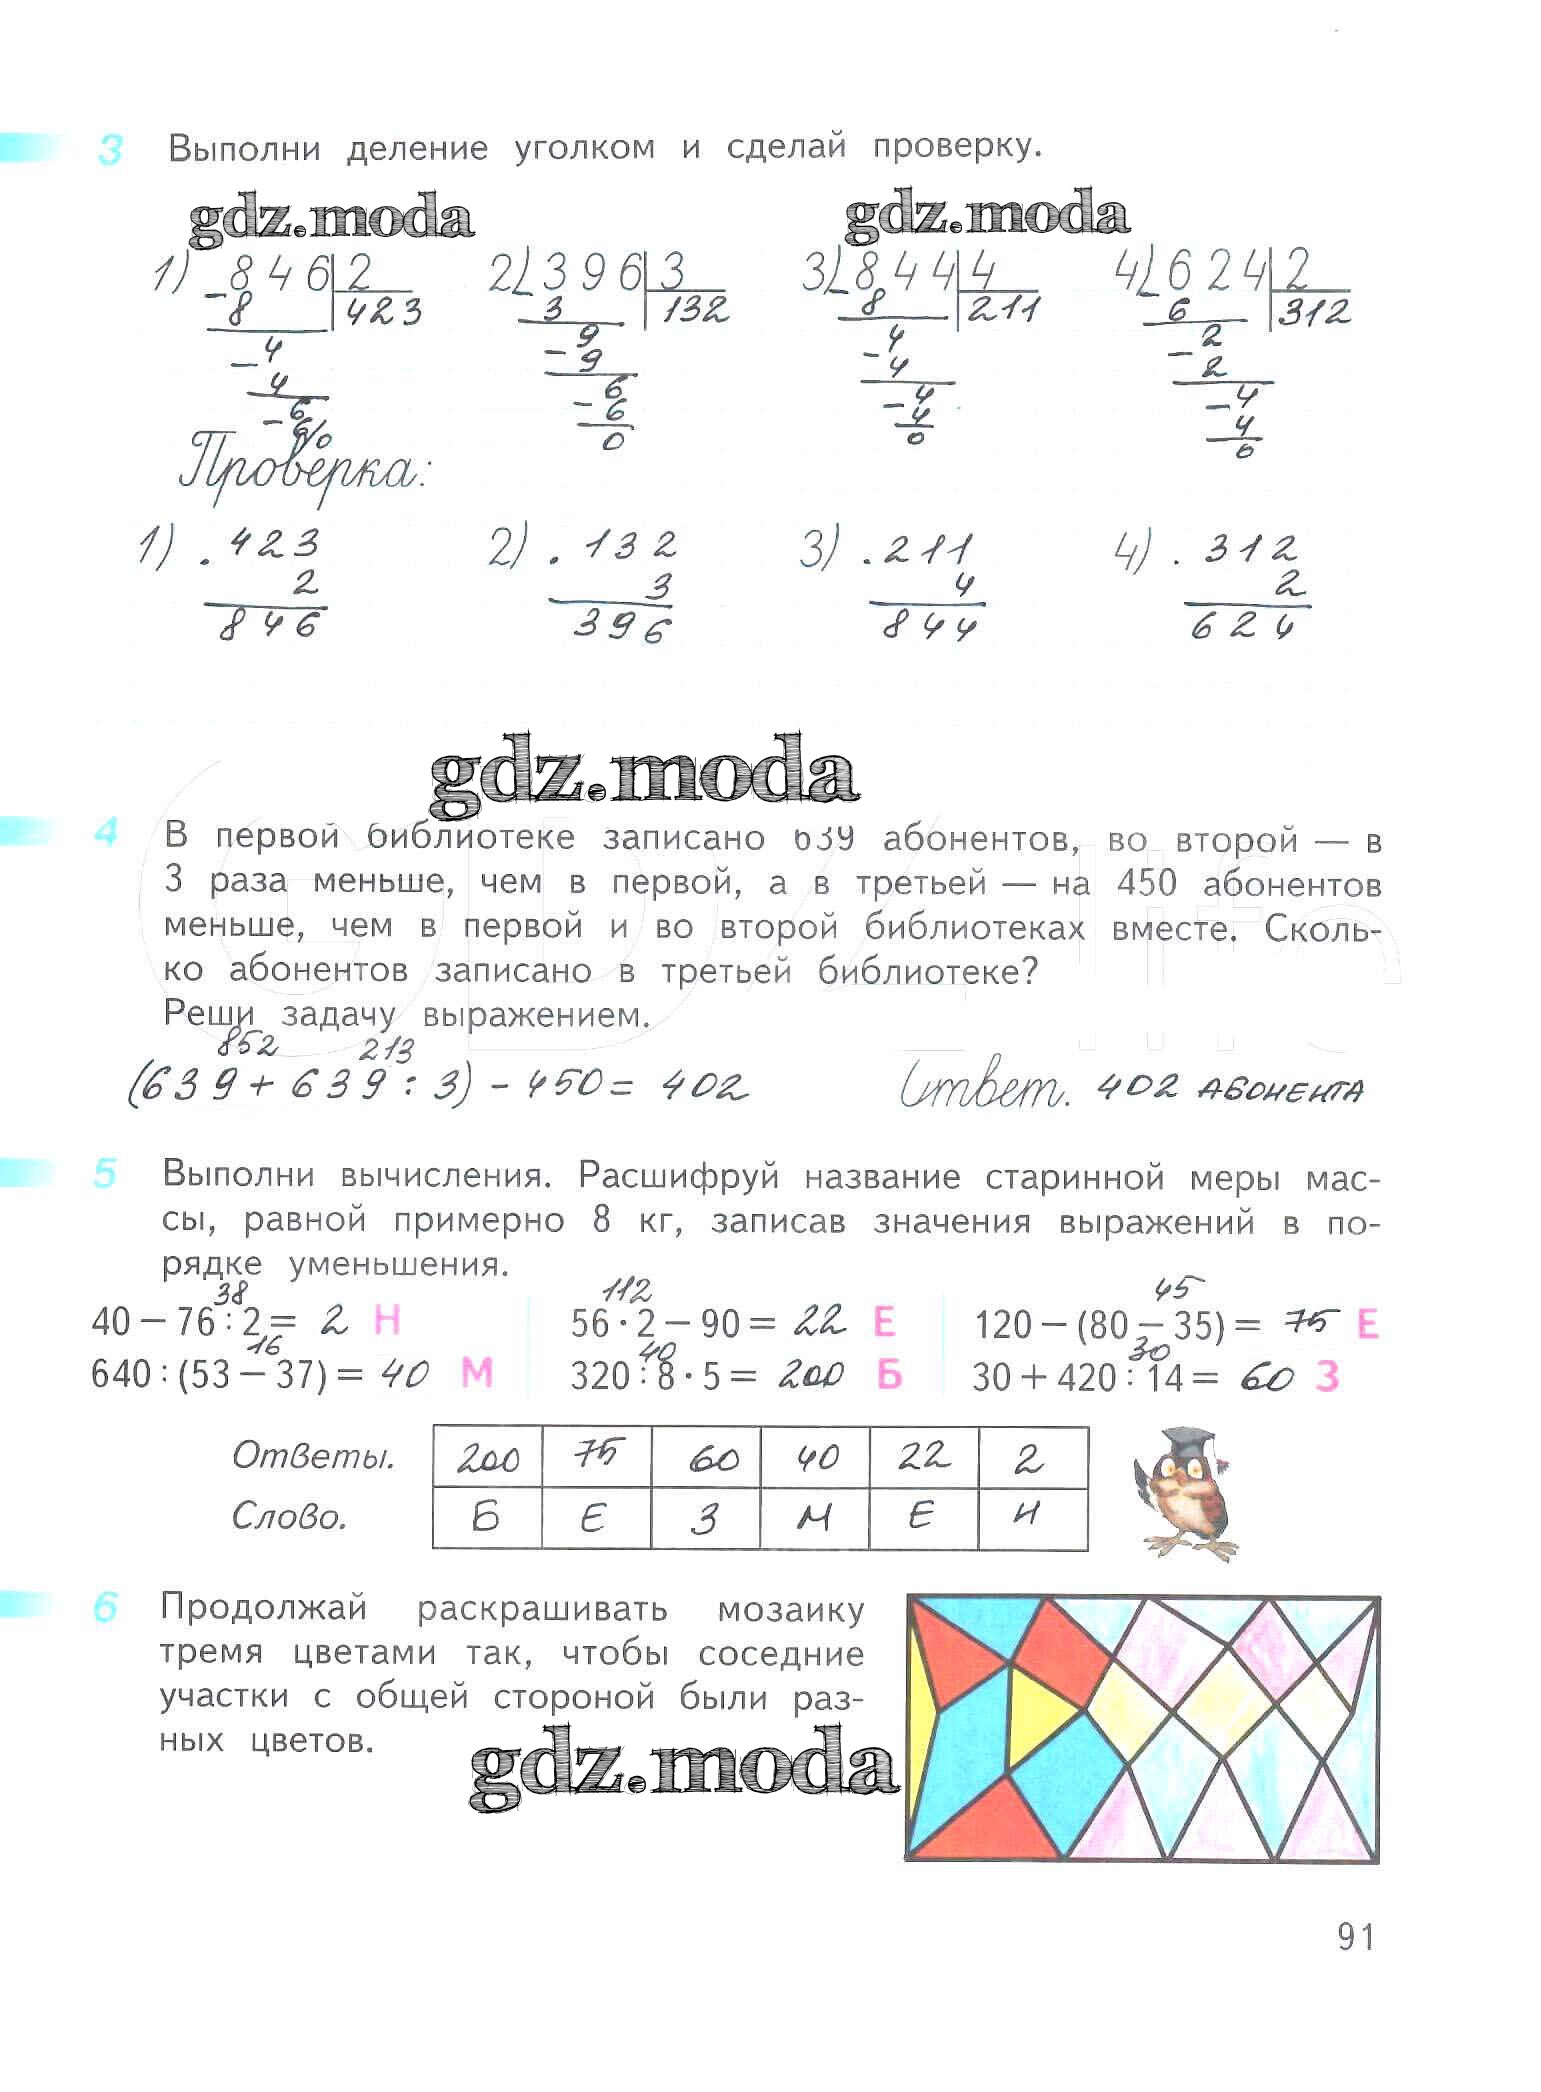 3 Выполни деление уголком и сделай проверку.
gdz.moda gdz.moda
1) 846 2 2) 396 3 3) 844 4 4) 624 2
-8 423 3 132 8 211 6 312
4 9 4 2
-4 -9 -4 -2
6 6 4 4
-6 -6 -4 -4
0 0 0 0
Проверка:
1) .423 2) .132 3) .211 4) .312
2 3 4 2
846 396 844 624
gdz.moda
4 В первой библиотеке записано 639 абонентов, во второй — в
3 раза меньше, чем в первой, а в третьей — на 450 абонентов
меньше, чем в первой и во второй библиотеках вместе. Сколь-
ко абонентов записано в третьей библиотеке?
Реши задачу выражением.
852 213
(639 + 639 : 3) - 450 = 402 Ответ. 402 АБОНЕНТА
5 Выполни вычисления. Расшифруй название старинной меры мас-
сы, равной примерно 8 кг, записав значения выражений в по-
рядке уменьшения.
38 112 45
40 – 76 : 2 = 2 Н 56 · 2 – 90 = 22 Е 120 – (80 – 35) = 75 Е
16 40 30
640 : (53 – 37) = 40 М 320 : 8 · 5 = 200 Б 30 + 420 : 14 = 60 З
Ответы. 200 75 60 40 22 2
Слово. Б Е З М Е Н
6 Продолжай раскрашивать мозаику
тремя цветами так, чтобы соседние
участки с общей стороной были раз-
ных цветов.
gdz.moda
91